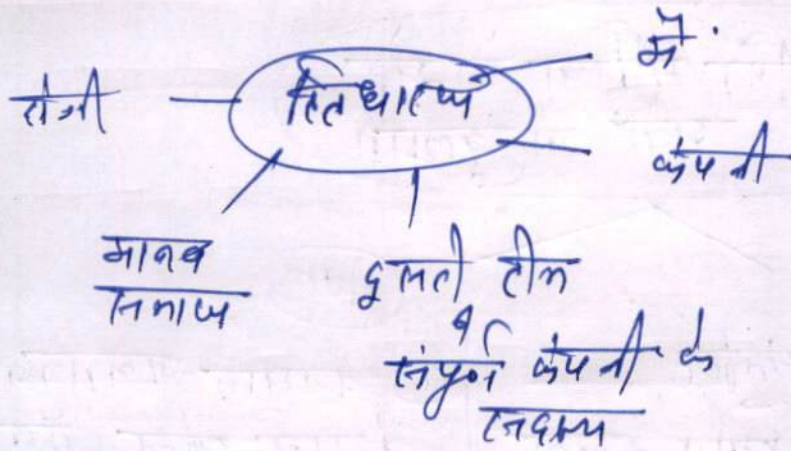 हितधारक
मैं
रोगी
कंपनी
मानव
समाज
दूसरी टीम
व
संपूर्ण कंपनी के
सदस्य